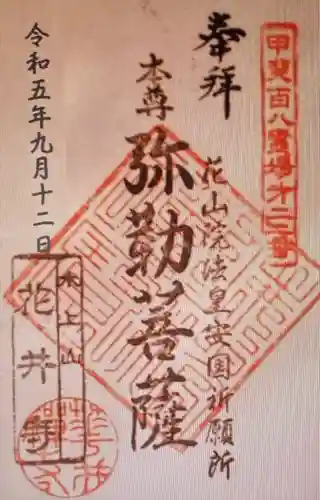 甲斐百八霊場第二番
奉拝
花山院法皇安国祈願所
本尊
弥勒菩薩
令和五年九月十二日
水上山
花井寺